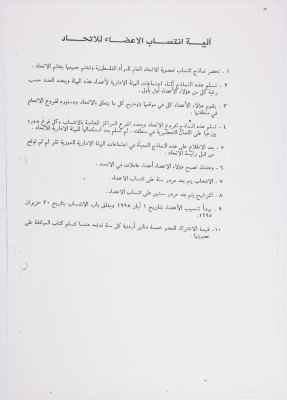 آلية انتساب الاعضاء للاتحاد
١ - تحضر نماذج انتساب لعضوية الاتحاد العام للمرأة الفلسطينية وتختم جميعها بخاتم الاتحاد .
٢ - تسلم هذه النماذج أثناء اجتماعات الهيئة الادارية لأعضاء هذه الهيئة ويحدد العدد حسب
رغبة كل من هؤلاء الأعضاء أول بأول .
٣ - يقوم هؤلاء الأعضاء كل في موقعها بتوضيح كل ما يتعلق بالاتحاد ودستوره لفروع الاتحاد
في منطقتها .
٤ - تسلم هذه النماذج لفروع الاتحاد ويحدد الفرع المراكز الخاصة بالانتساب وكل فرع بدوره
يوزعها على اللجان التحضيرية في منطقته . ثم تسلم بعد استكمالها للهيئة الادارية للاتحاد .
٥ - بعد الاطلاع على هذه النماذج المعبأة في اجتماعات الهيئة الادارية الدورية تقر ثم توقع
من قبل رئيسة الاتحاد .
٦ - وعندئذ تصبح هؤلاء الاعضاء أعضاء عاملات في الاتحاد .
٧ - الانتخاب يتم بعد مرور سنة على انتساب الاعضاء .
٨ - الترشيح يتم بعد مرور سنتين على انتساب الاعضاء .
٩ - يبدأ تنسيب الأعضاء بتاريخ ١ أيار ١٩٩٥ ويغلق باب الانتساب بتاريخ ٣٠ حزيران
١٩٩٥ .
١٠ - قيمة الاشتراك للعضو خمسة دنانير أردنية كل سنة تدفعه عندما تستلم كتاب الموافقة على
عضويتها .